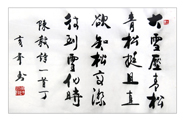 大雪壓青松
青松挺且直
欲知松高潔
待到雪化時
陳毅詩一首丁